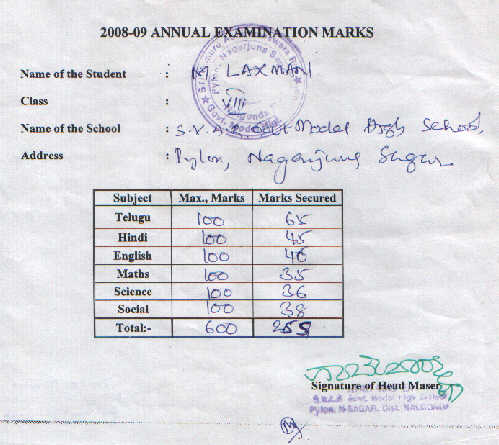 2008-09 ANNUAL EXAMINATION MARKS
Name of the Student : M. LAXMANI
Class : VIII
Name of the School : Model High School,
Address : Pylon, Nagarjuna Sagar
Subject Max., Marks Marks Secured
Telugu 100 65
Hindi 100 45
English 100 40
Maths 100 35
Science 100 36
Social 100 38
Total:- 600 259
Signature of Head Maser
Govt. Model High School
Pylon, N-SAGAR, Dist. NALGONDA